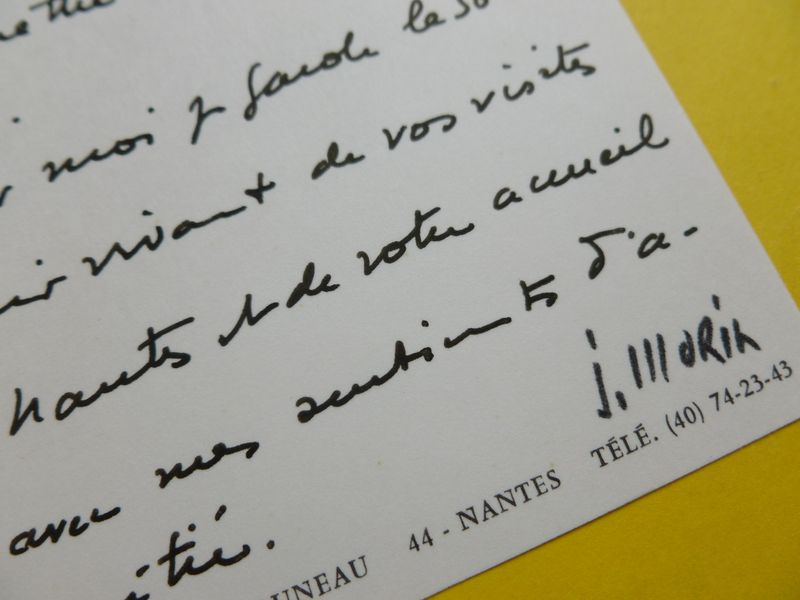 moi je garde le so
vivant de vos visites
nantes et de votre accueil
avec mes sentiments d'a-
itié.
J. MORIN
UNEAU 44 - NANTES TÉLÉ. (40) 74-23-43